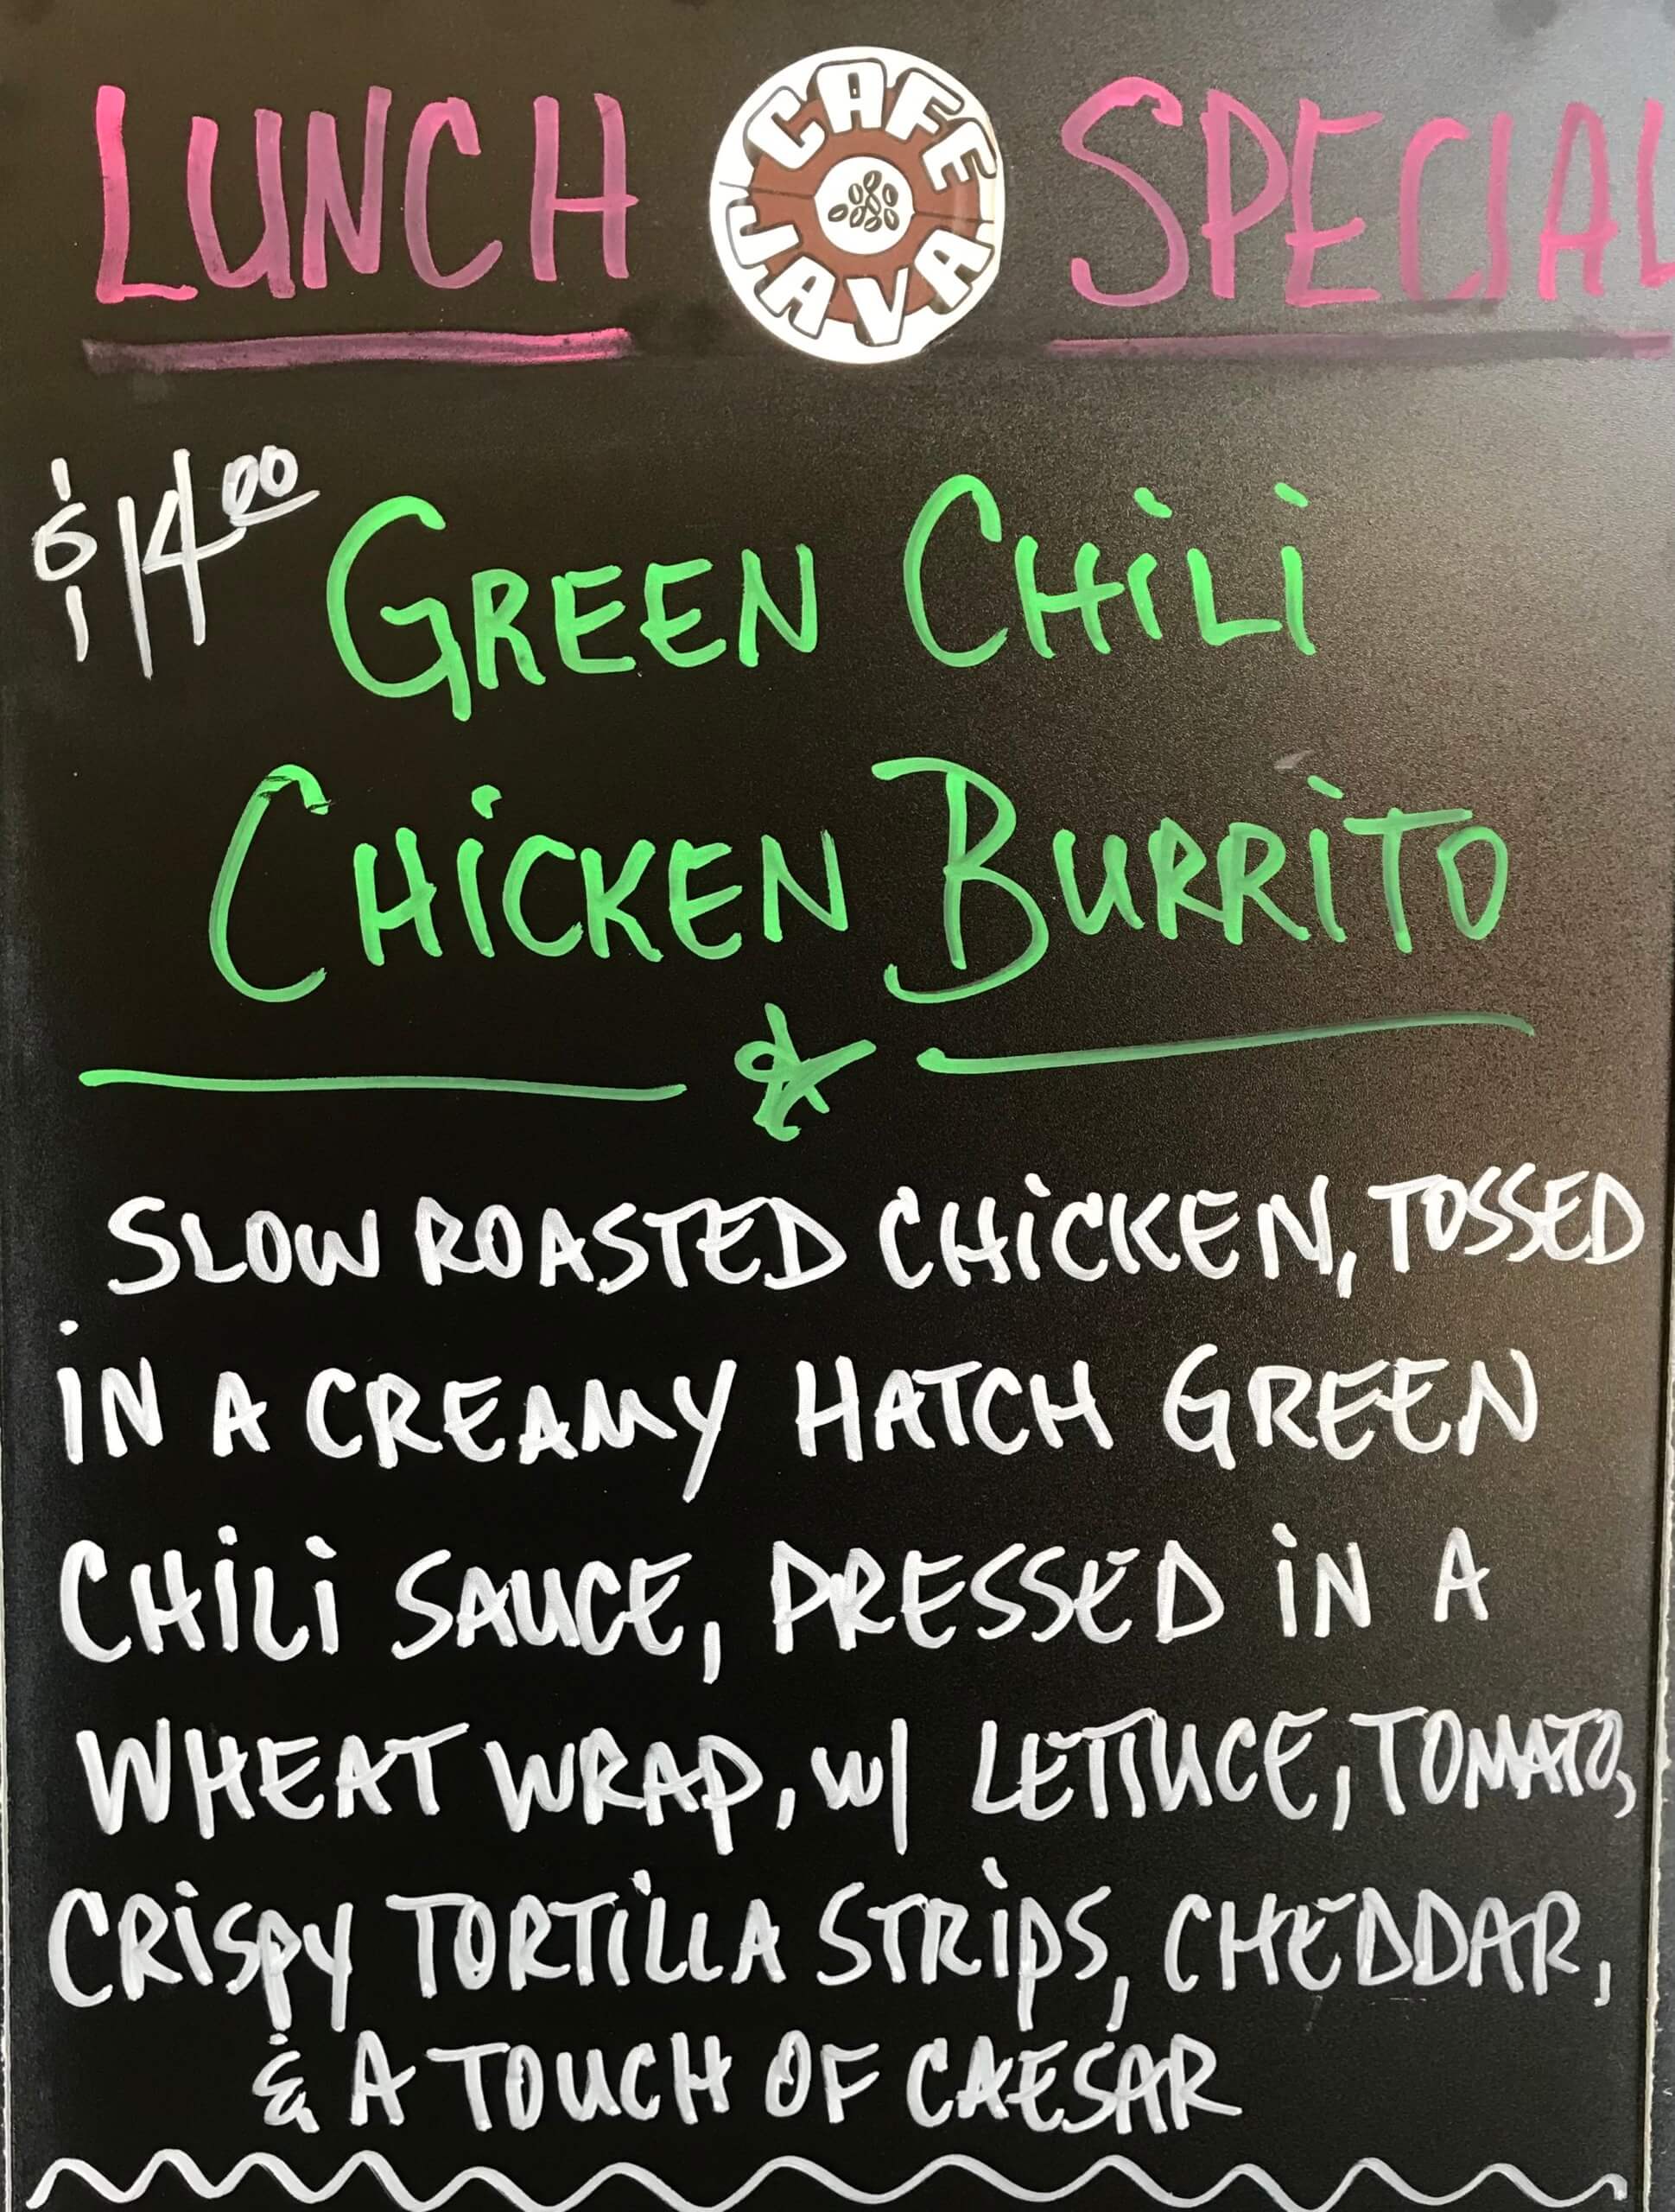 LUNCH CAFE JAVA SPECIAL
$14.00 GREEN CHILI
CHICKEN BURRITO
SLOW ROASTED CHICKEN, TOSSED
IN A CREAMY HATCH GREEN
CHILI SAUCE, PRESSED IN A
WHEAT WRAP, W/ LETTUCE, TOMATO,
CRISPY TORTILLA STRIPS, CHEDDAR,
& A TOUCH OF CAESAR